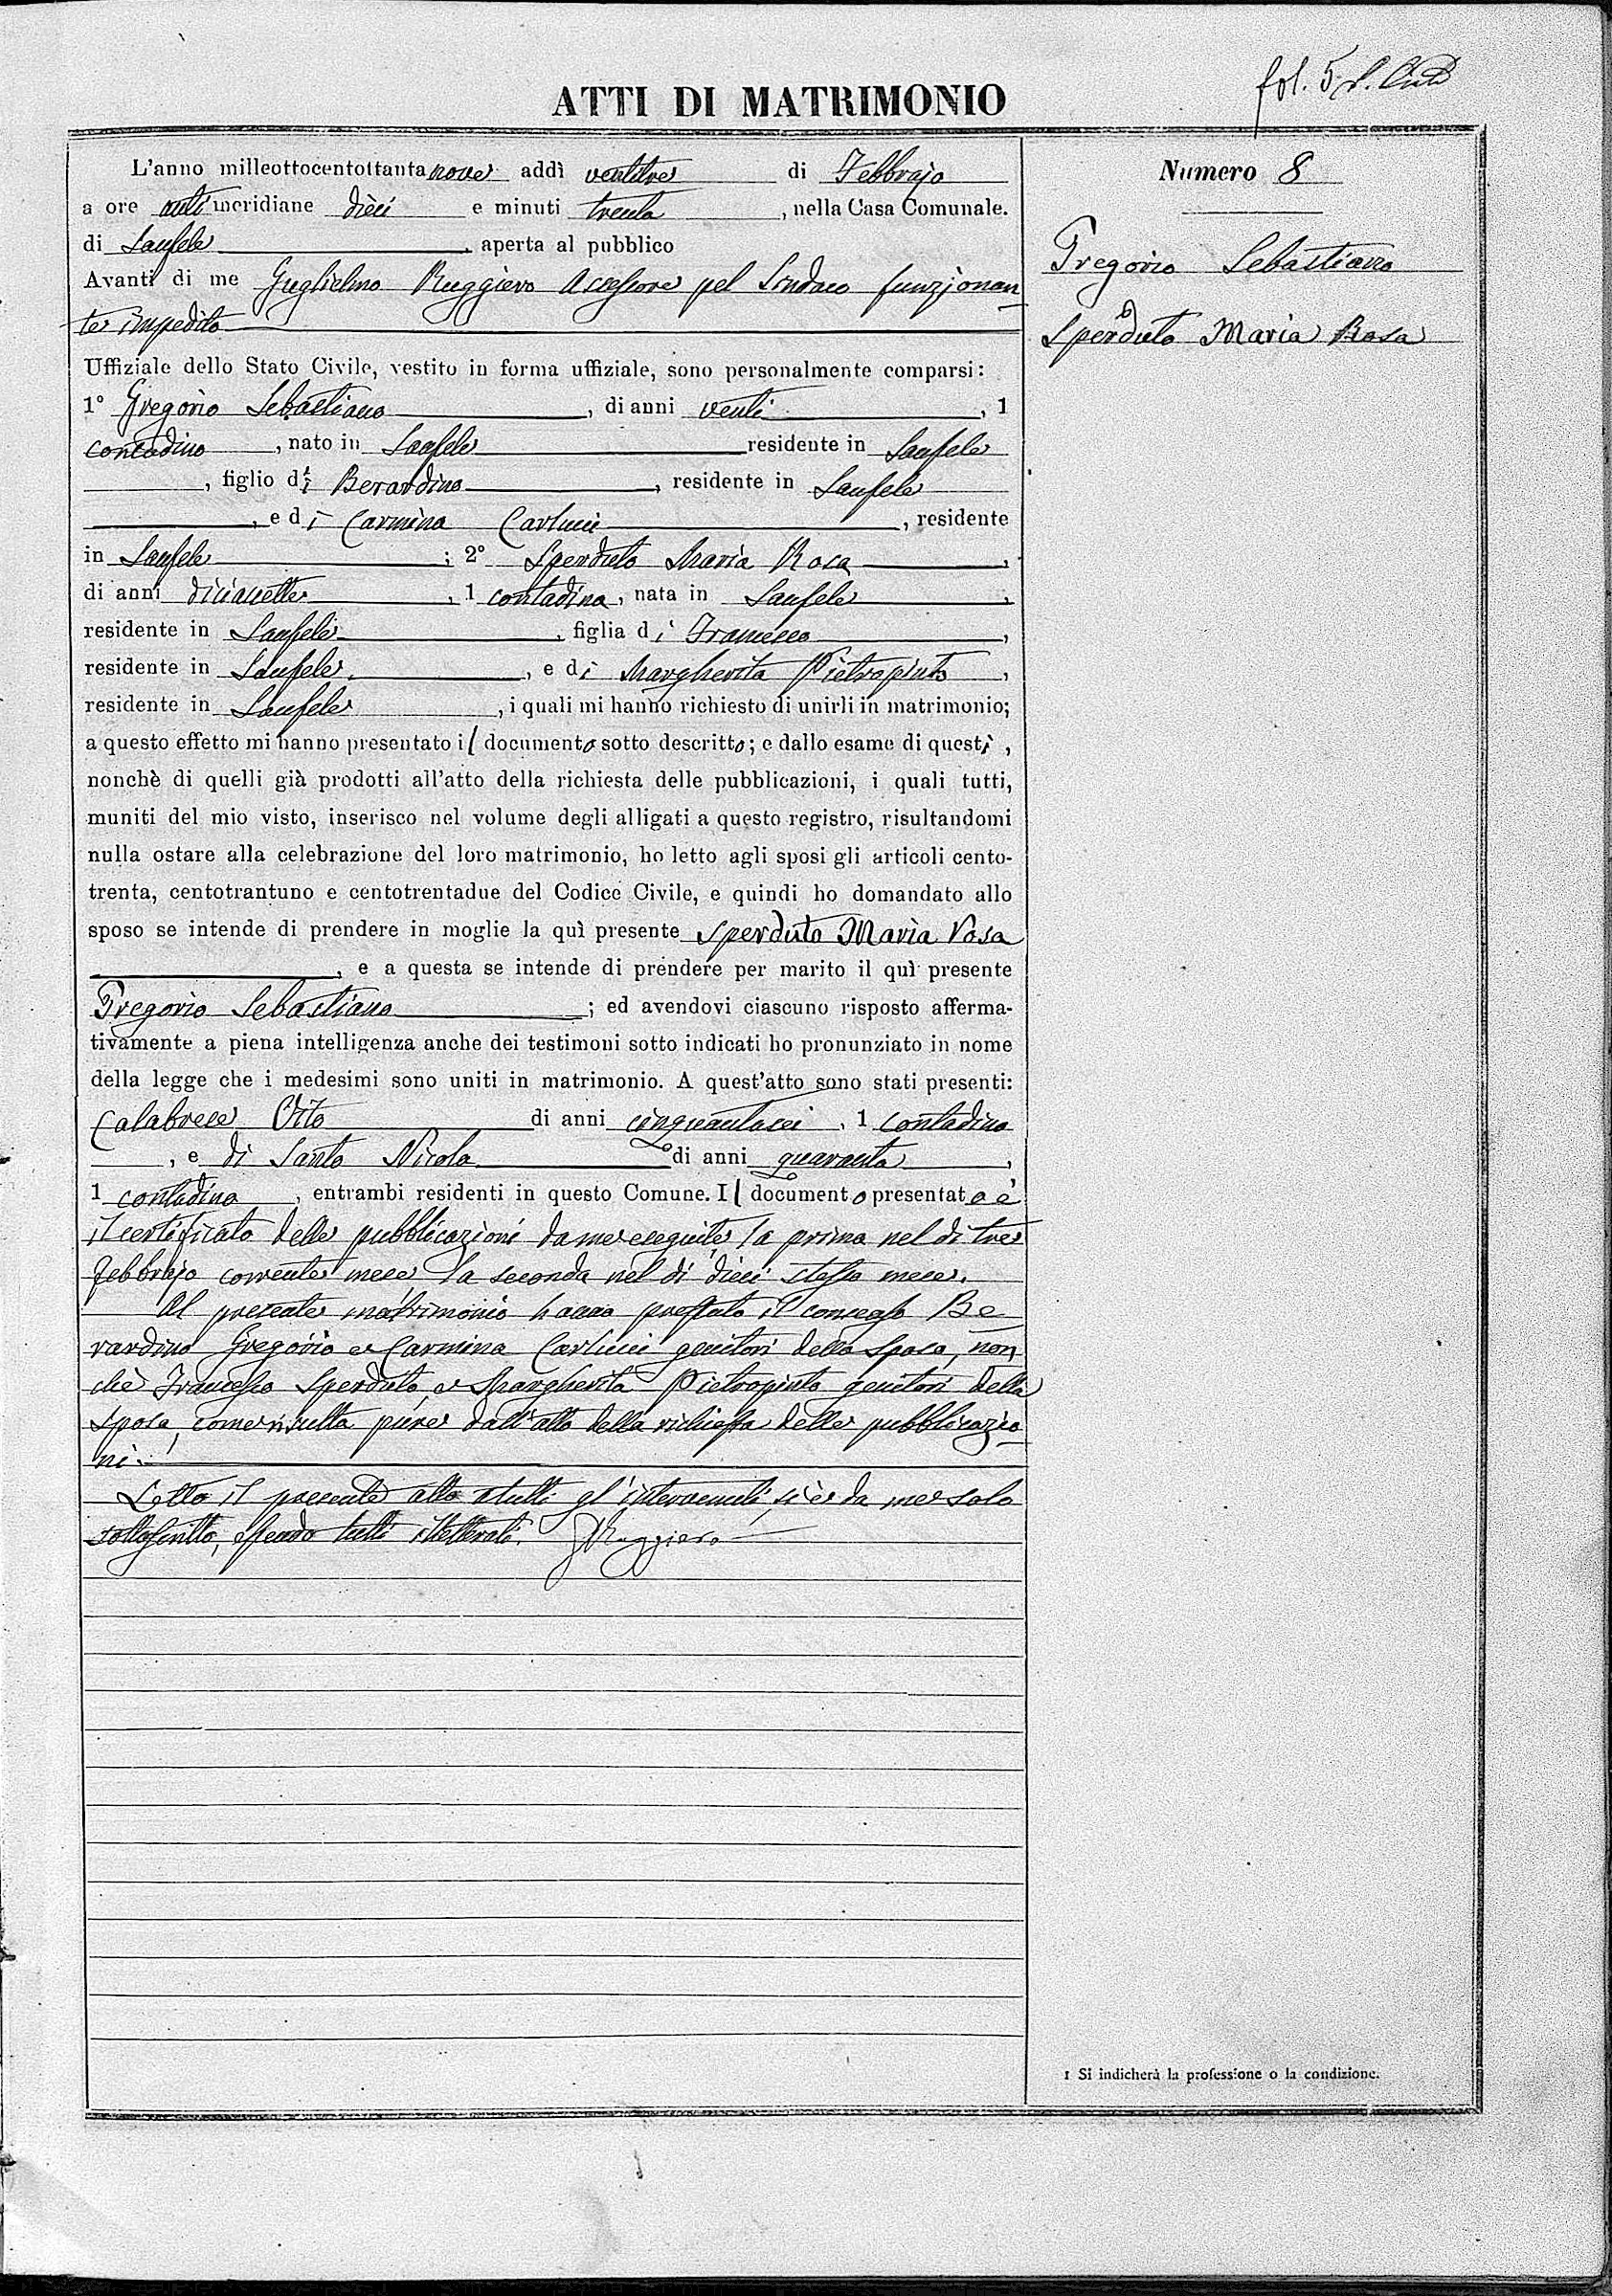 fol. 5
ATTI DI MATRIMONIO
Numero 8
Gregorio Sebastiano
Sperduto Maria Rosa
L'anno milleottocentottantanove addì ventitre di Febbrajo
a ore antimeridiane dieci e minuti trenta, nella Casa Comunale.
di Sanfele, aperta al pubblico
Avanti di me Guglielmo Ruggiero Assessore pel Sindaco funzionan
te impedito
Uffiziale dello Stato Civile, vestito in forma uffiziale, sono personalmente comparsi:
1° Gregorio Sebastiano, di anni venti, 1
contadino, nato in Sanfele residente in Sanfele
, figlio di Berardino, residente in Sanfele
, e di Carmina Carlucci, residente
in Sanfele; 2° Sperduto Maria Rosa,
di anni diciasette, 1 contadina, nata in Sanfele,
residente in Sanfele, figlia di Francesco,
residente in Sanfele, e di Margherita Pietropinto,
residente in Sanfele, i quali mi hanno richiesto di unirli in matrimonio;
a questo effetto mi hanno presentato il documento sotto descritto; e dallo esame di questi,
nonchè di quelli già prodotti all'atto della richiesta delle pubblicazioni, i quali tutti,
muniti del mio visto, inserisco nel volume degli alligati a questo registro, risultandomi
nulla ostare alla celebrazione del loro matrimonio, ho letto agli sposi gli articoli cento-
trenta, centotrantuno e centotrentadue del Codice Civile, e quindi ho domandato allo
sposo se intende di prendere in moglie la quì presente Sperduto Maria Rosa
, e a questa se intende di prendere per marito il quì presente
Gregorio Sebastiano; ed avendovi ciascuno risposto afferma-
tivamente a piena intelligenza anche dei testimoni sotto indicati ho pronunziato in nome
della legge che i medesimi sono uniti in matrimonio. A quest'atto sono stati presenti:
Calabrese Vito di anni cinquantasei, 1 contadino
, e di Santo Nicola di anni quaranta,
1 contadino, entrambi residenti in questo Comune. Il documento presentato è
il certificato delle pubblicazioni da me eseguite, la prima nel dì tre
febbrajo corrente mese la seconda nel dì dieci stesso mese.
Al presente matrimonio hanno prestato il consenso Be
rardino Gregorio e Carmina Carlucci genitori dello sposo, non
chè Francesco Sperduto, e Margherita Pietropinto genitori della
sposa, come risulta pure dall'atto della richiesta delle pubblicazio
ni.
Letto il presente atto a tutti gl'intervenuti, si è da me solo
sottoscritto, essendo tutti illetterati. GRuggiero
1 Si indicherà la professione o la condizione.